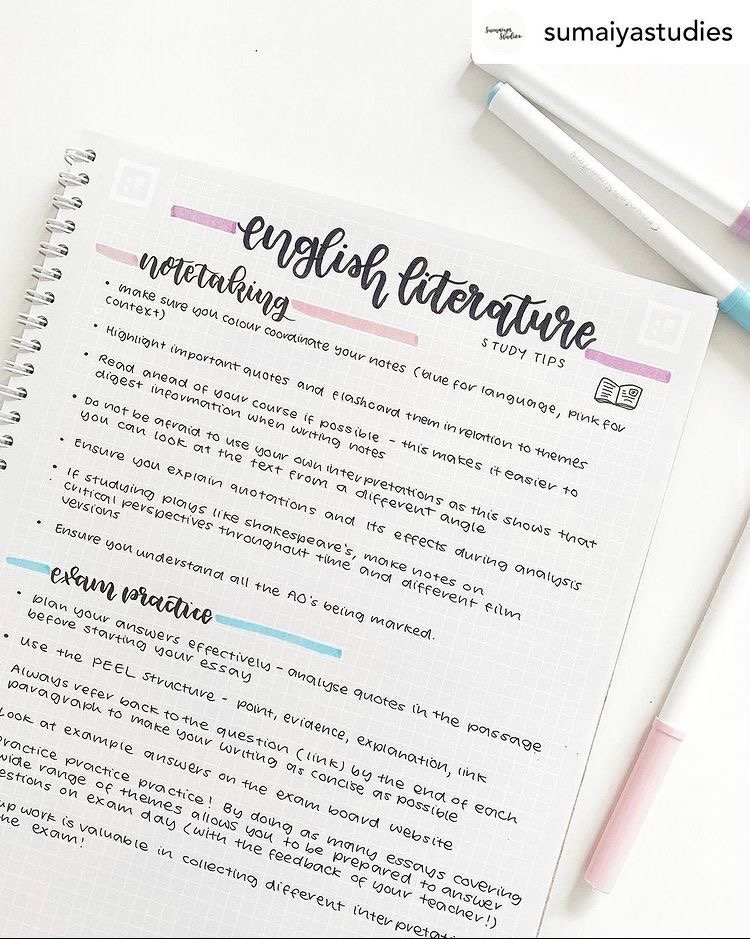 Sumaiya Studies
sumaiyastudies
english literature
STUDY TIPS
notetaking
• make sure you colour coordinate your notes (blue for language, pink for
context)
• Highlight important quotes and flashcard them in relation to themes
• Read ahead of your course if possible - this makes it easier to
digest information when writing notes
• Do not be afraid to use your own interpretations as this shows that
you can look at the text from a different angle
• Ensure you explain quotations and its effects during analysis
• If studying plays like shakespeare's, make notes on
critical perspectives throughout time and different film
versions
• Ensure you understand all the AO's being marked.
exam practice
• plan your answers effectively - analyse quotes in the passage
before starting your essay
• Use the PEEL structure - point, evidence, explanation, link
Always refer back to the question (link) by the end of each
paragraph to make your writing as concise as possible
Look at example answers on the exam board website
practice practice practice! By doing as many essays covering
wide range of themes allows you to be prepared to answer
estions on exam day (with the feedback of your teacher!)
up work is valuable in collecting different interpretati
he exam!